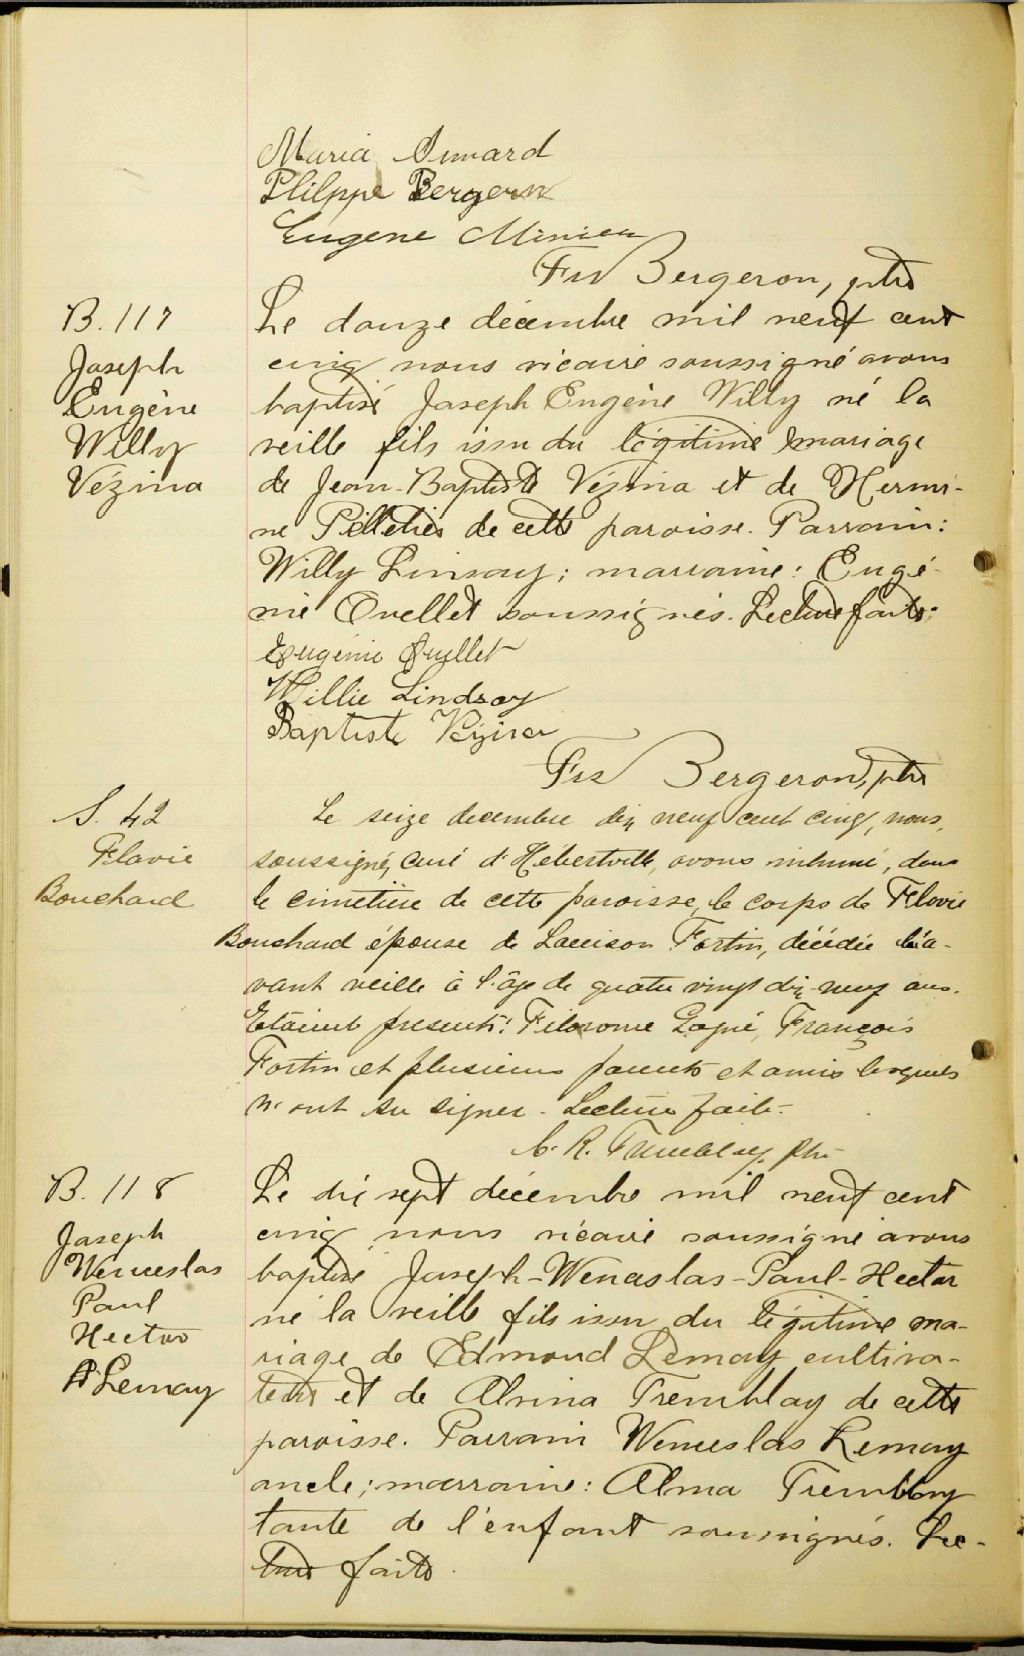 Maria Simard
Philppe Bergern
Eugene
Frs Bergeron, ptre
B. 117
Joseph
Eugène
Willy
Vézina
Le douze décembre mil neuf cent
cinq nous vicaire soussigné avons
baptisé Joseph Eugène Willy né la
veille fils issu du légitime mariage
de Jean-Baptiste Vézina et de Hermi-
ne Pelletier de cette paroisse. Parrain:
Willy Linsay; marraine: Eugé-
nie Ouellet soussignés. Lecture faite.
Eugénie Ouellet
Willie Lindsay
Baptiste Vézina
Frs Bergeron, ptre
S. 42
Flavie
Bouchard
Le seize decembre dix neuf cent cinq, nous,
soussigné, curé d'Hebertville, avons inhumé, dans
le cimetière de cette paroisse, le corps de Flavie
Bouchard épouse de Fortin, décédée l'a-
vant veille à l'âge de quatre vingt dix-neuf ans.
Etaient présents: Gagné, François
Fortin et plusieurs parents et amis lesquels
n'ont su signer - Lecture faite -
Tremblay, Ptre
B. 118
Joseph
Wenceslas
Paul
Hector
Lemay
Le dix sept décembre mil neuf cent
cinq nous vicaire soussigné avons
baptisé Joseph-Wenceslas-Paul-Hector
né la veille fils issu du légitime ma-
riage de Edmond Lemay cultiva-
teur et de Alvina Tremblay de cette
paroisse. Parrain Wenceslas Lemay
oncle; marraine: Alma Tremblay
tante de l'enfant soussignés. Lec-
ture faite.